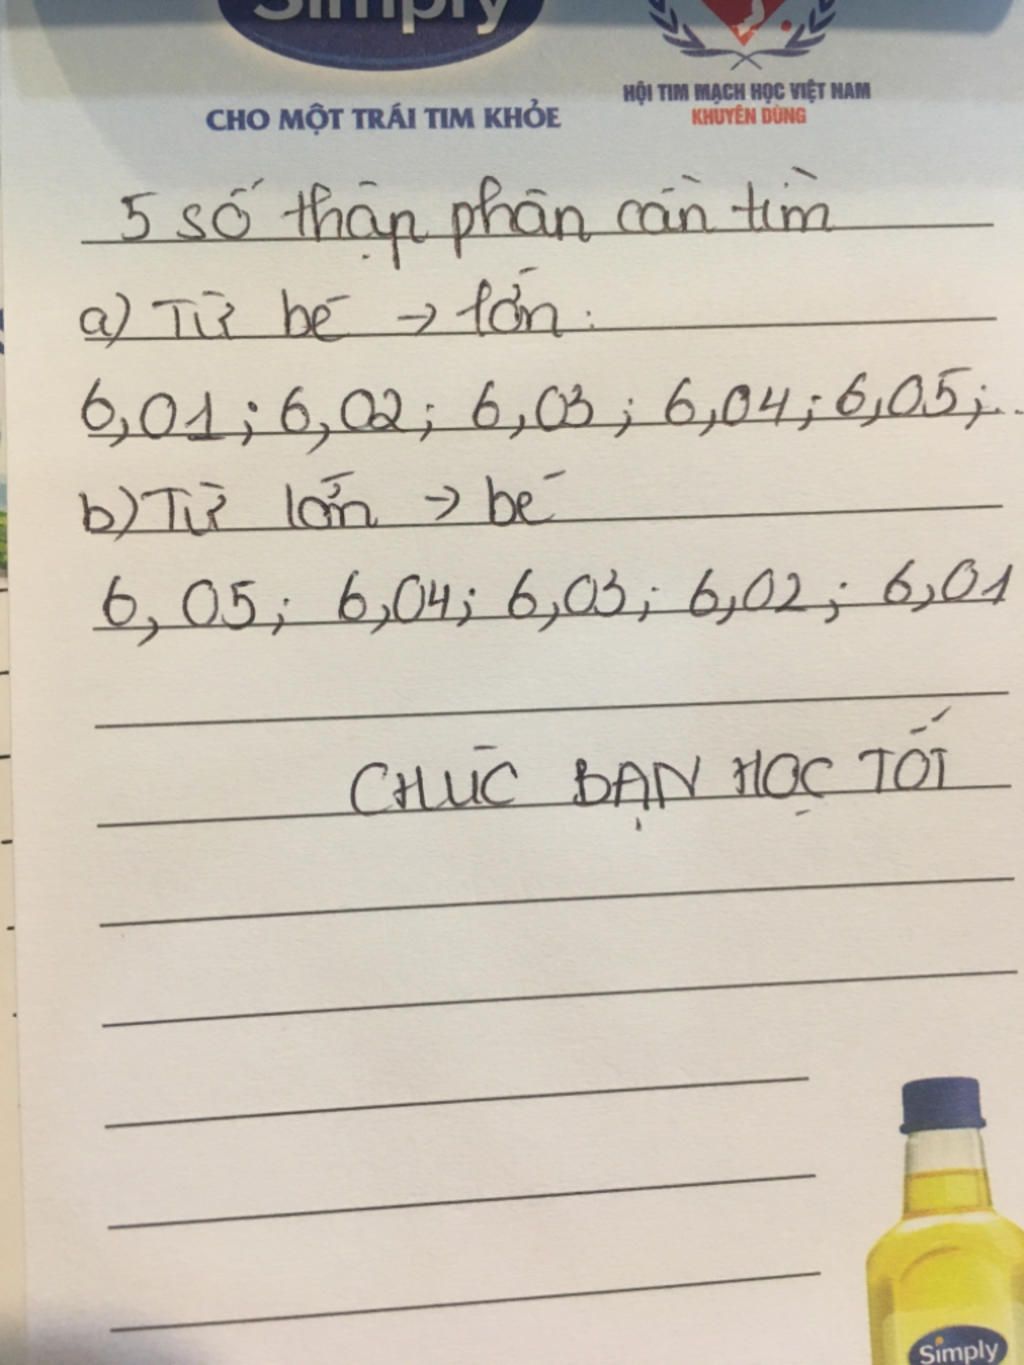 Simply
HỘI TIM MẠCH HỌC VIỆT NAM
CHO MỘT TRÁI TIM KHỎE
KHUYÊN DÙNG
5 số thập phân cần tìm
a) Từ bé → lớn:
6,01; 6,02; 6,03; 6,04; 6,05;...
b) Từ lớn → bé
6,05; 6,04; 6,03; 6,02; 6,01
CHÚC BẠN HỌC TỐT
Simply